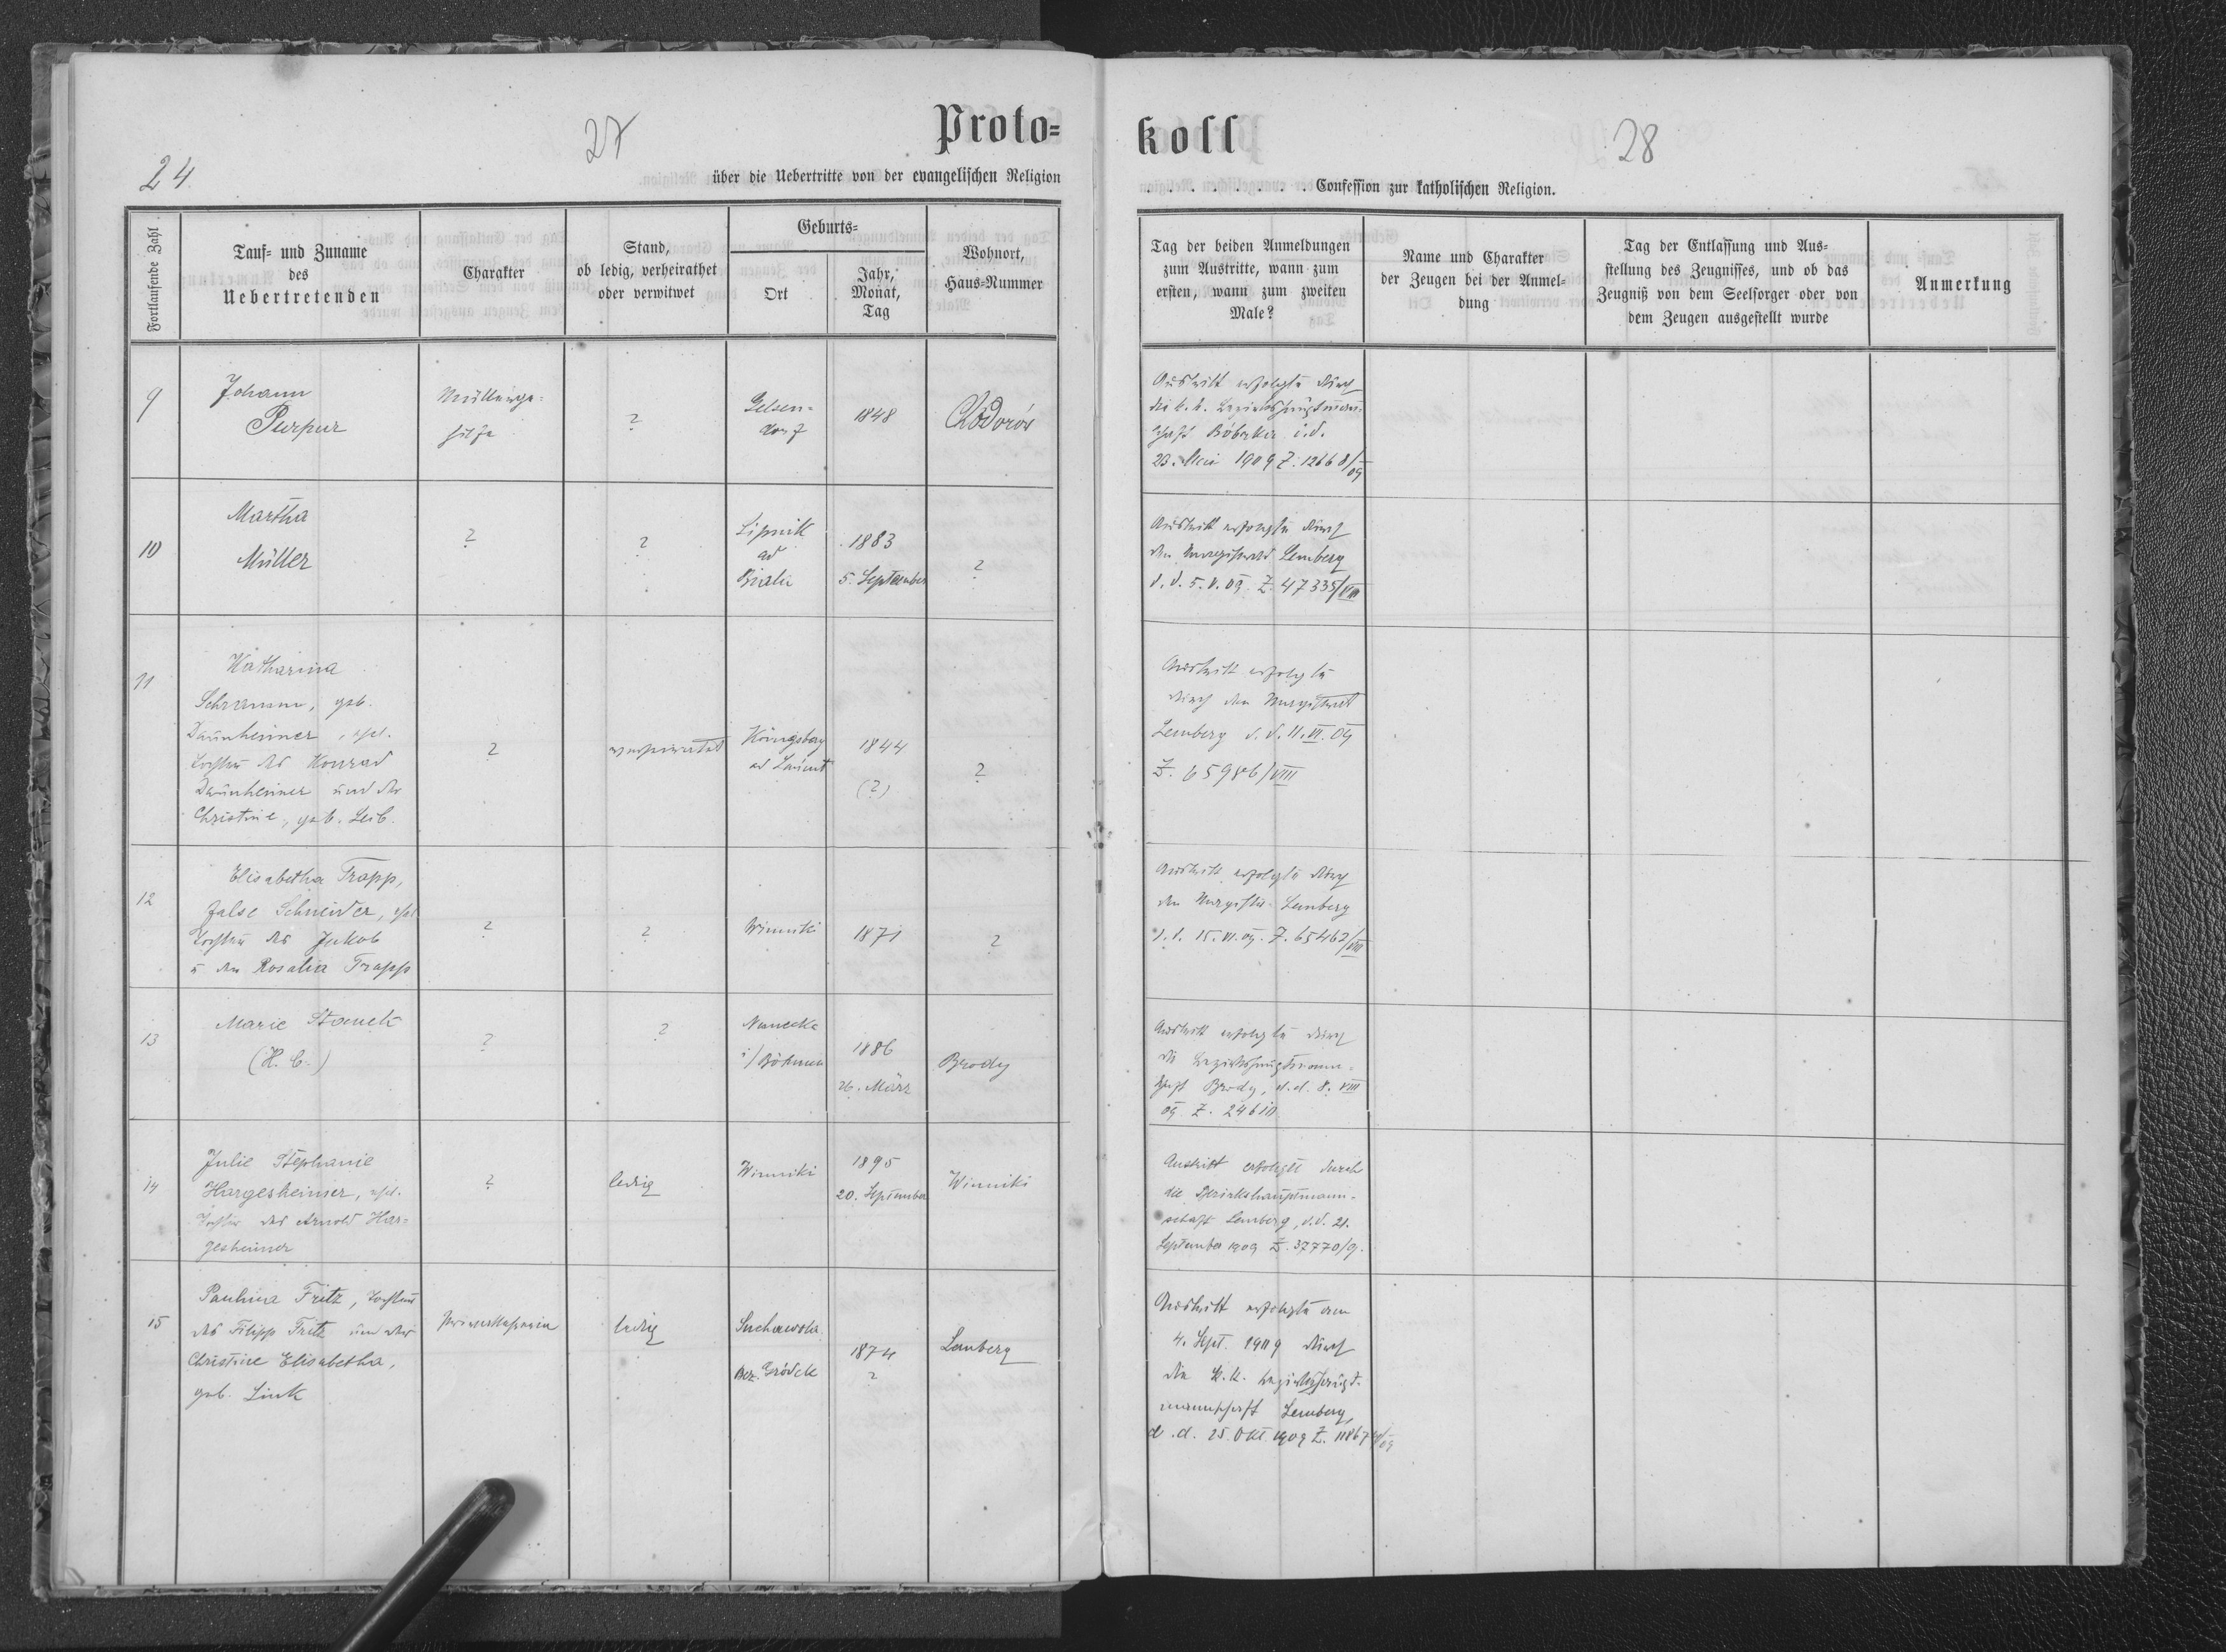 27
Proto-
24
über die Uebertritte von der evangelischen Religion
Fortlaufende Zahl
Tauf- und Zuname
des
Uebertretenden
Charakter
Stand,
ob ledig, verheirathet
oder verwitwet
Geburts-
Ort
Jahr,
Monat,
Tag
Wohnort,
Haus-Nummer
9
Johann
Purpur
Müllerge-
hilfe
?
Gelsen-
dorf
1848
Chodorów
10
Martha
Müller
?
?
Lipnik
ad
Biala
1883
5. September
?
11
Katharina
Schramm, geb.
Daunheimer, ehel.
Tochter des Konrad
Daunheimer und der
Christine, geb. Leib.
?
verheiratet
Königsberg
ad
1844
(?)
?
12
Elisabetha Trapp,
false Schneider, ehel
Tochter des Jakob
u der Rosalia Trapp
?
?
Winniki
1871
?
13
Marie Stanek
(H. C.)
?
?
i/Böhmen
1886
26. März
Brody
14
Julie Stephanie
Hargesheimer, ehel.
Tochter des Arnold Har-
gesheimer
?
ledig
Winniki
1895
20. September
Winniki
15
Paulina Fritz, Tochter
des Filipp Fritz und der
Christine Elisabetha,
geb. Link
ledig
Suchawola
Bez. Gródek
1874
?
Lemberg
koll
28
. . . . . . . . Confession zur katholischen Religion.
Tag der beiden Anmeldungen
zum Austritte, wann zum
ersten, wann zum zweiten
Male?
Name und Charakter
der Zeugen bei der Anmel-
dung
Tag der Entlassung und Aus-
stellung des Zeugnisses, und ob das
Zeugniß von dem Seelsorger oder von
dem Zeugen ausgestellt wurde
Anmerkung
Austritt erfolgte durch
die k. k. Bezirkshauptmann-
schaft Bóbrka d. d.
23. Mai 1909 Z. 12668/09
Austritt erfolgte durch
den Magistrat Lemberg
d. d. 5. V. 09. Z. 47335/VIII
Austritt erfolgte
durch den Magistrat
Lemberg d. d. 11. VI. 09
Z. 65986/VIII
Austritt erfolgte durch
den Magistr. Lemberg
d. d. 15. VI. 09. Z. 65462/VIII
Austritt erfolgte durch
die Bezirkshauptmann-
schaft Brody, d. d. 8. VIII
09 Z. 24610
Austritt erfolgte durch
die Bezirkshauptmann-
schaft Lemberg, d. d. 21.
September 1909 Z. 37770/9.
Austritt erfolgte am
4. Sept. 1909 durch
die k. k. Bezirkshaupt-
mannschaft Lemberg,
d. d. 25. Okt. 1909 Z.